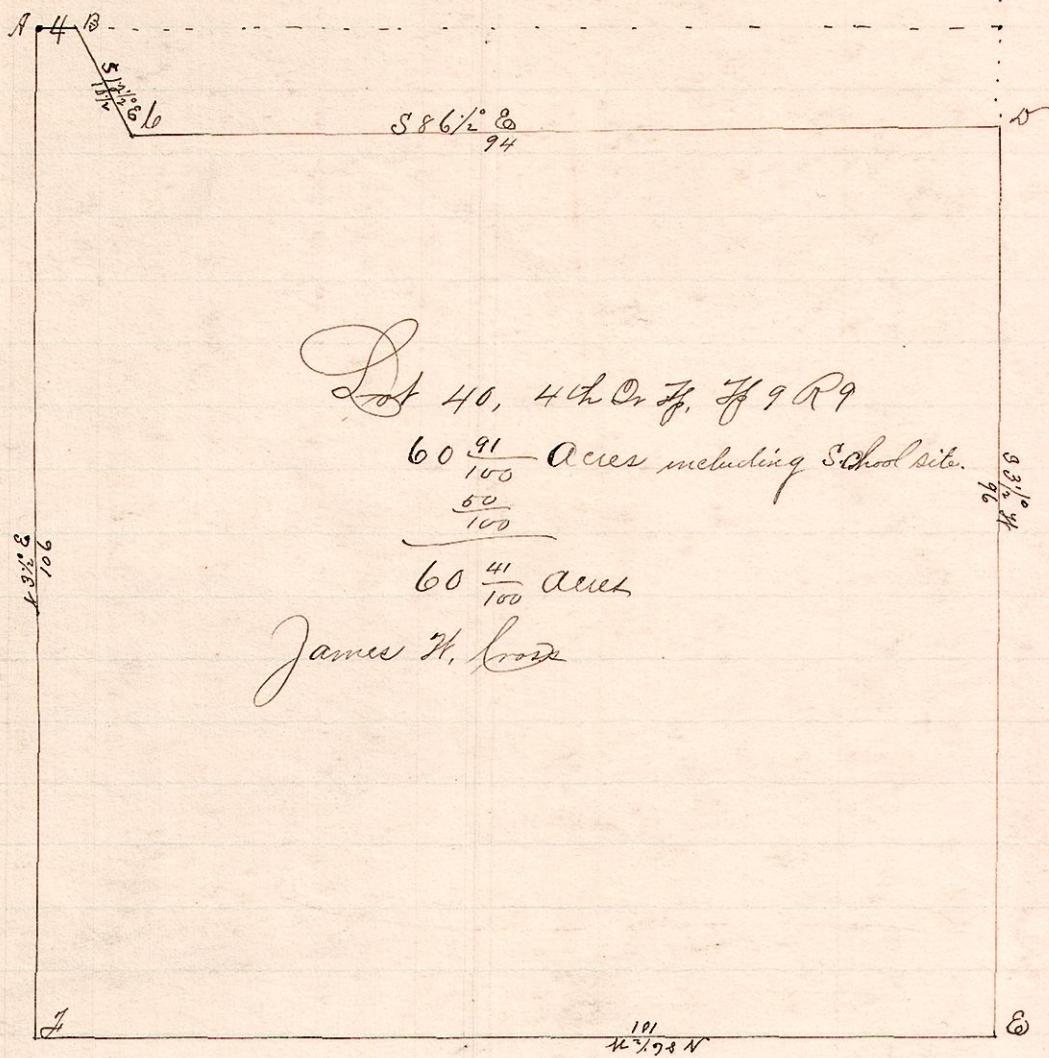 A 4 B
C
S 86½° E
94
D
Lot 40, 4th Qr Tp, Tp 9 R 9
60 91/100 Acres including School site.
50/100
60 41/100 acres
James W. Cross
S 3½° W
96
N 3½° E
106
F
101
N 86½ W
E